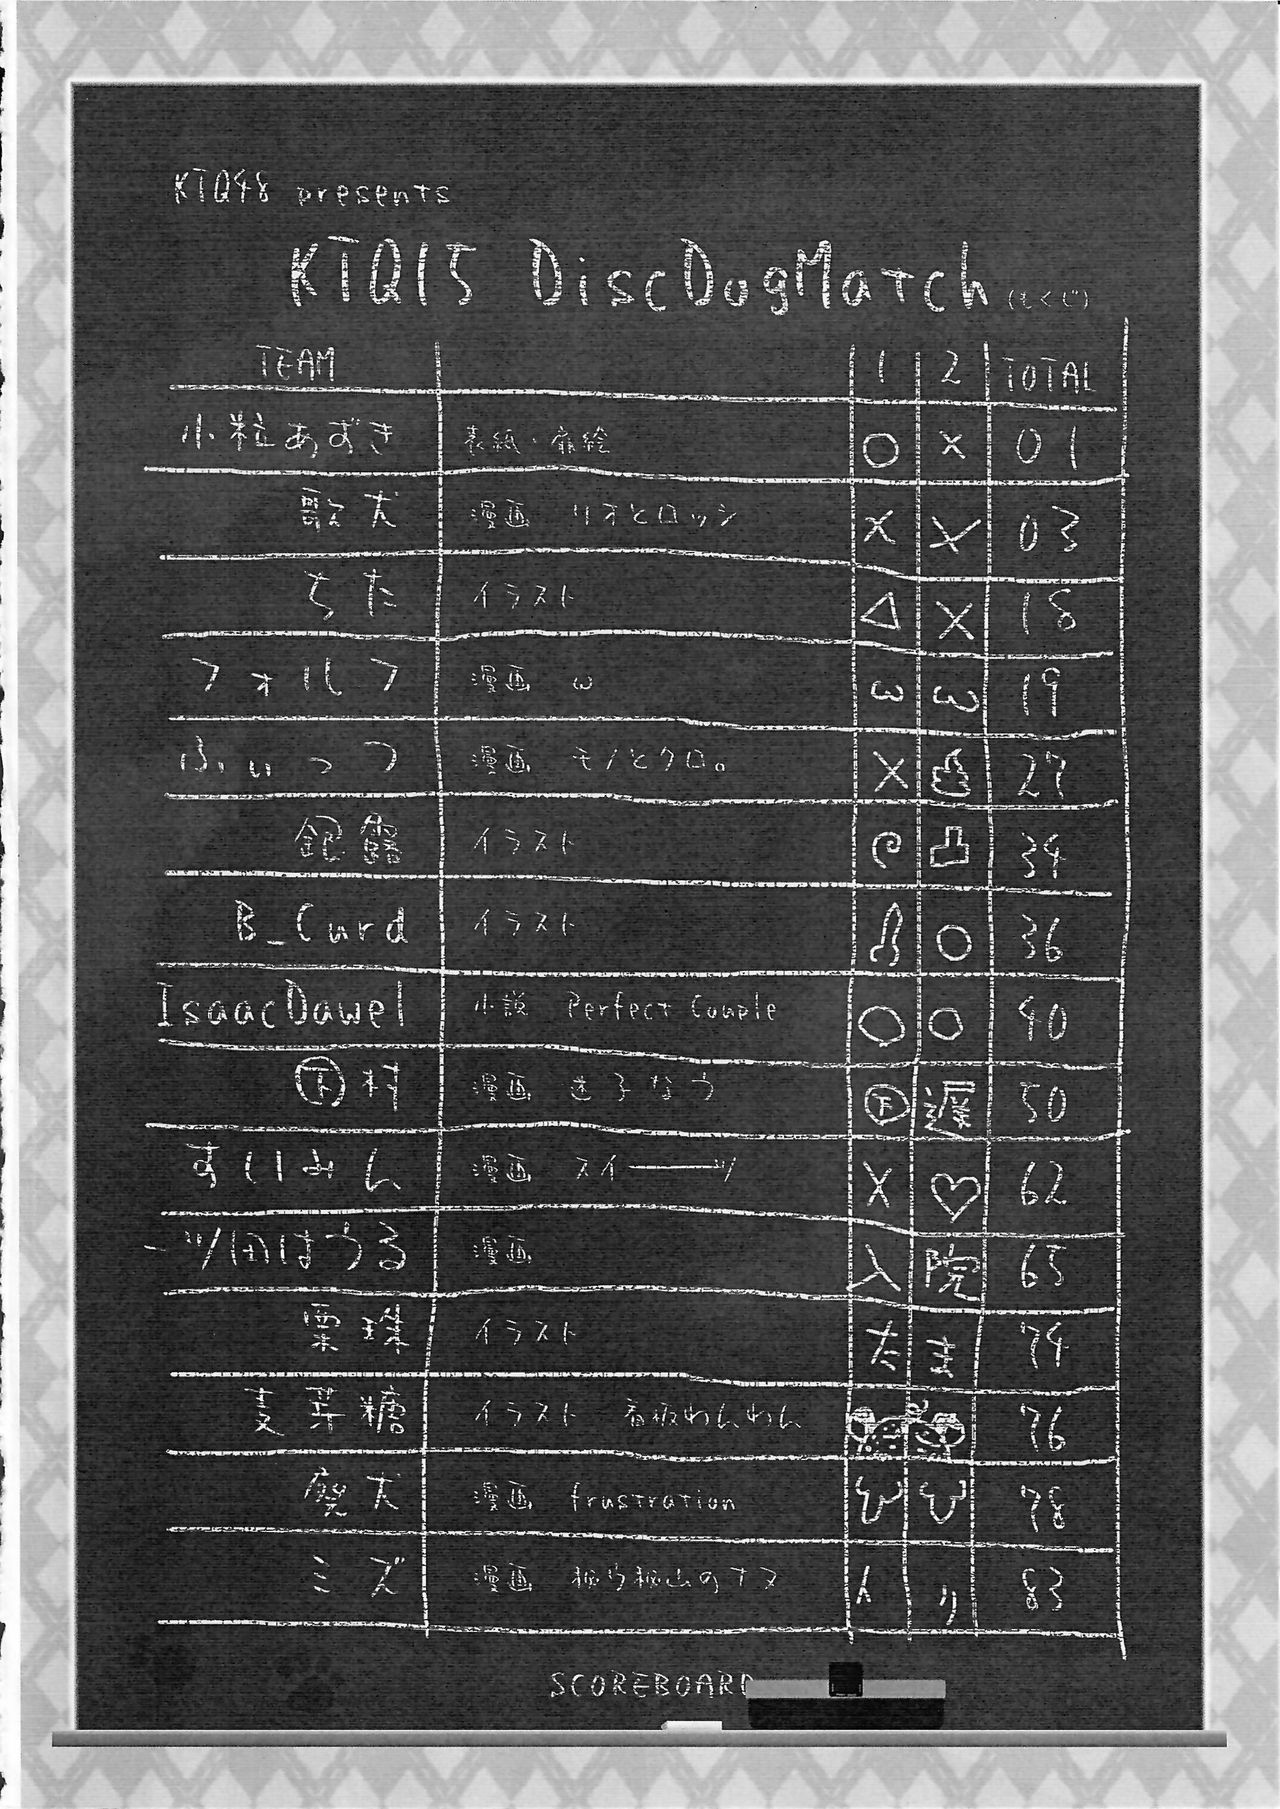 KTQ48 presents
KTQ15 DiscDogMatch (もくじ)
TEAM 1 2 TOTAL
小粒あずき 表紙・扉絵 ○ × 01
歌犬 漫画 リオとロッシ × × 03
ちた イラスト △ × 18
フォルフ 漫画 ω ω ω 19
ふぃっつ 漫画 モノとクロ。 × 27
銀露 イラスト 凸 34
B_Curd イラスト ○ 36
IsaacDawel 小説 Perfect Couple ○ ○ 40
下村 漫画 迷子なう 下 遅 50
すいみん 漫画 スイーーーツ × ♡ 62
一ツ田はうる 漫画 入 院 65
栗珠 イラスト た ま 74
麦芽糖 イラスト 看板わんわん 76
廃犬 漫画 frustration 78
ミズ 漫画 ナヌ ト リ 83
SCOREBOARD